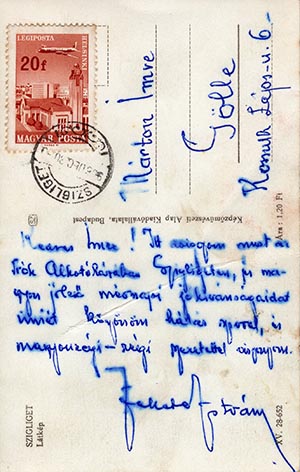 LÉGIPOSTA
HELSINKI
20f
MAGYAR POSTA
SZIGLIGET
Márton Imre
Gölle
Kossuth Lajos u. 6.
Képzőművészeti Alap Kiadóvállalata, Budapest
Ára: 1,20 Ft
Kedves Imre! Itt most az
Írók Alkotóházában Szigligeten, és
névnapi jókívánságaidat
innét köszönöm hálás szívvel, és
régi szeretettel
Fekete István
SZIGLIGET
Látkép
XV. 28-652